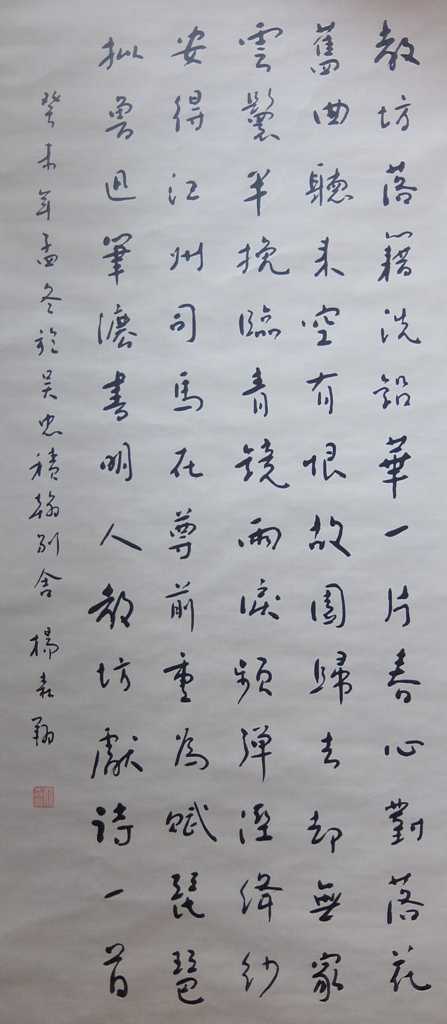 教坊落籍洗鉛華一片春心對落花
舊曲聽来空有恨故園歸去却無家
雲鬟半挽臨青鏡雨淚頻彈溼絳紗
安得江州司馬在尊前重為賦琵琶
拟魯迅筆灋書明人教坊獻詩一首
癸未年孟冬於吴忠積翰别舍 楊森翔